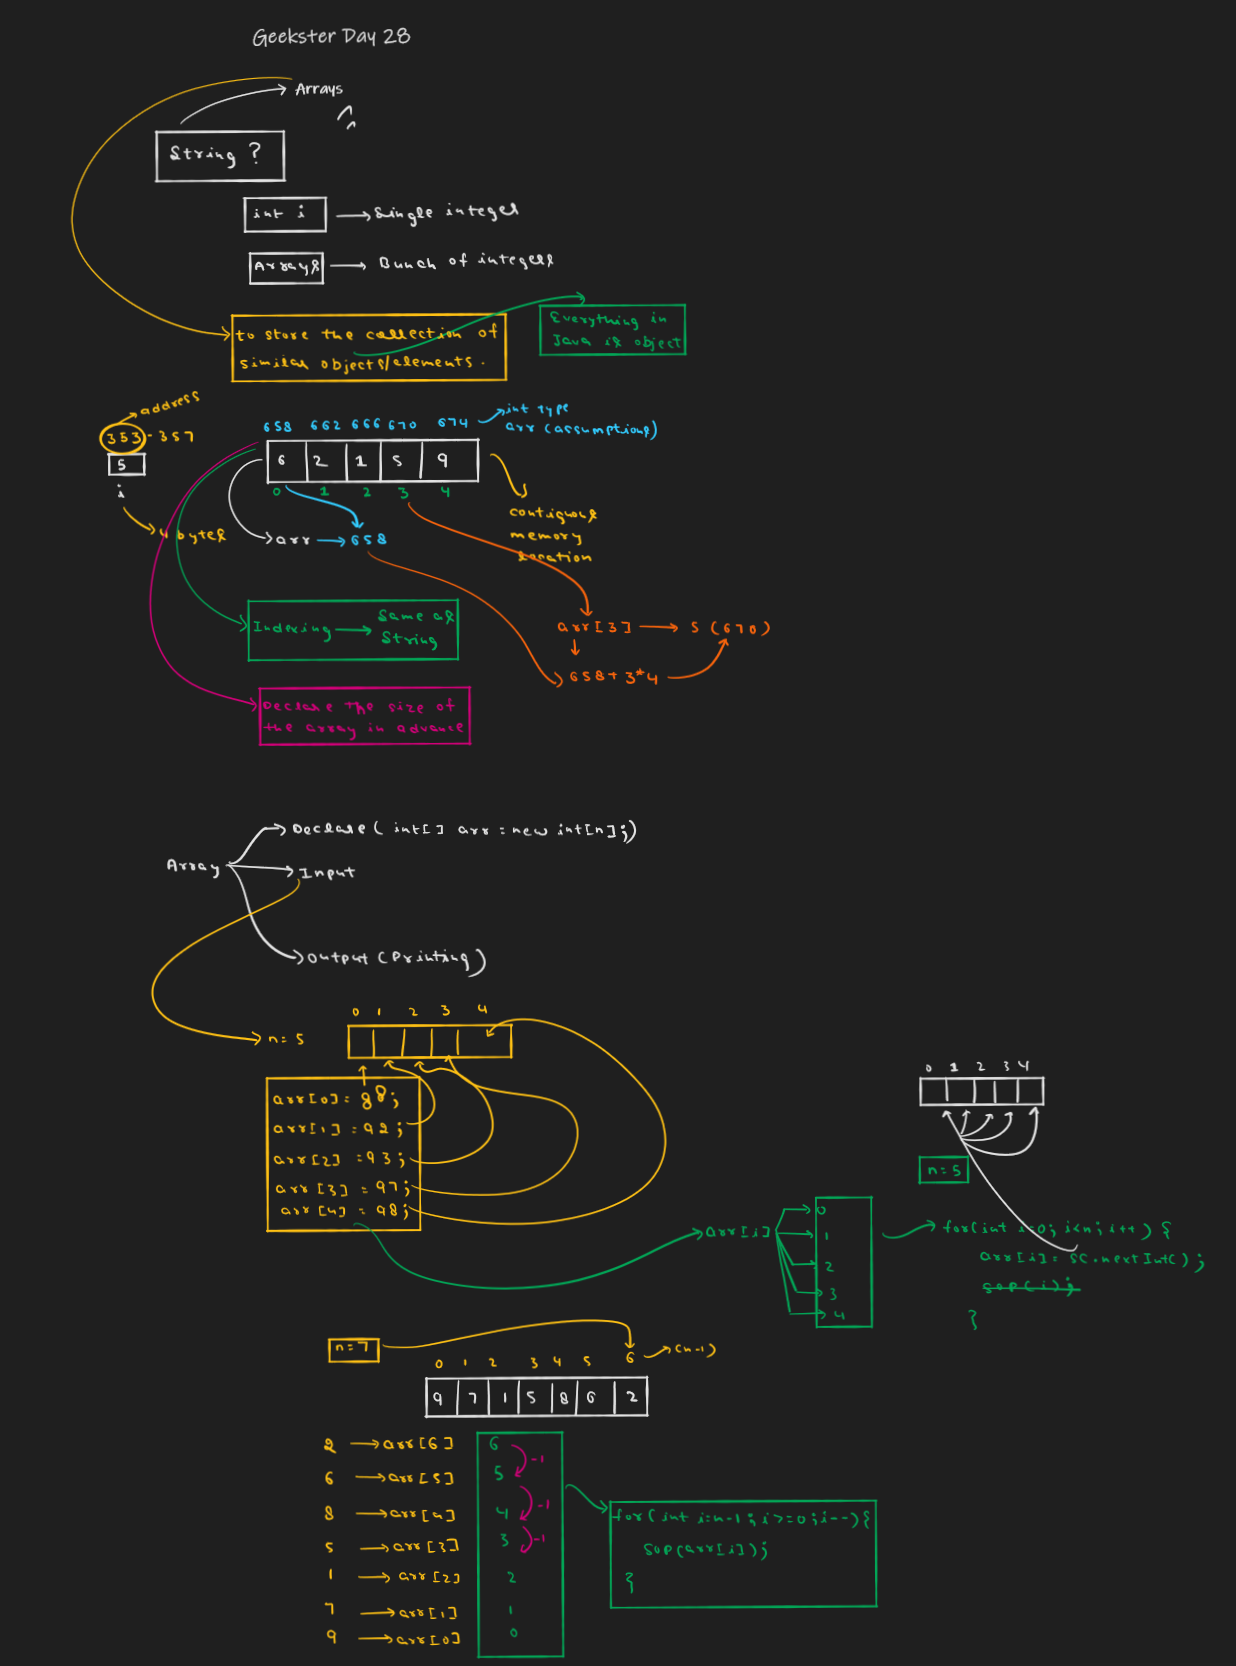 Geekster Day 28
Arrays
String ?
int i → Single integer
Arrays → Bunch of integers
to store the collection of
similar objects/elements.
Everything in
Java is object
address
353 - 357
5
i
4 bytes
658 662 666 670 674
int type
arr (assumptions)
6 2 1 5 9
0 1 2 3 4
contiguous
memory
location
arr → 658
Indexing → Same as
String
arr[3] → 5 (670)
658 + 3*4
Declare the size of
the array in advance
Array
Declare ( int[] arr = new int[n];)
Input
Output (Printing)
n = 5
0 1 2 3 4
arr[0] = 88;
arr[1] = 92;
arr[2] = 93;
arr[3] = 97;
arr[4] = 98;
0 1 2 3 4
n = 5
arr[i]
0
1
2
3
4
for(int i=0; i<n; i++) {
arr[i] = sc.nextInt();
sop(i);
}
n = 7
0 1 2 3 4 5 6 → (n-1)
9 7 1 5 8 6 2
2 → arr[6] 6
-1
6 → arr[5] 5
-1
8 → arr[4] 4
-1
5 → arr[3] 3
1 → arr[2] 2
7 → arr[1] 1
9 → arr[0] 0
for( int i=n-1; i>=0; i--){
Sop(arr[i]);
}